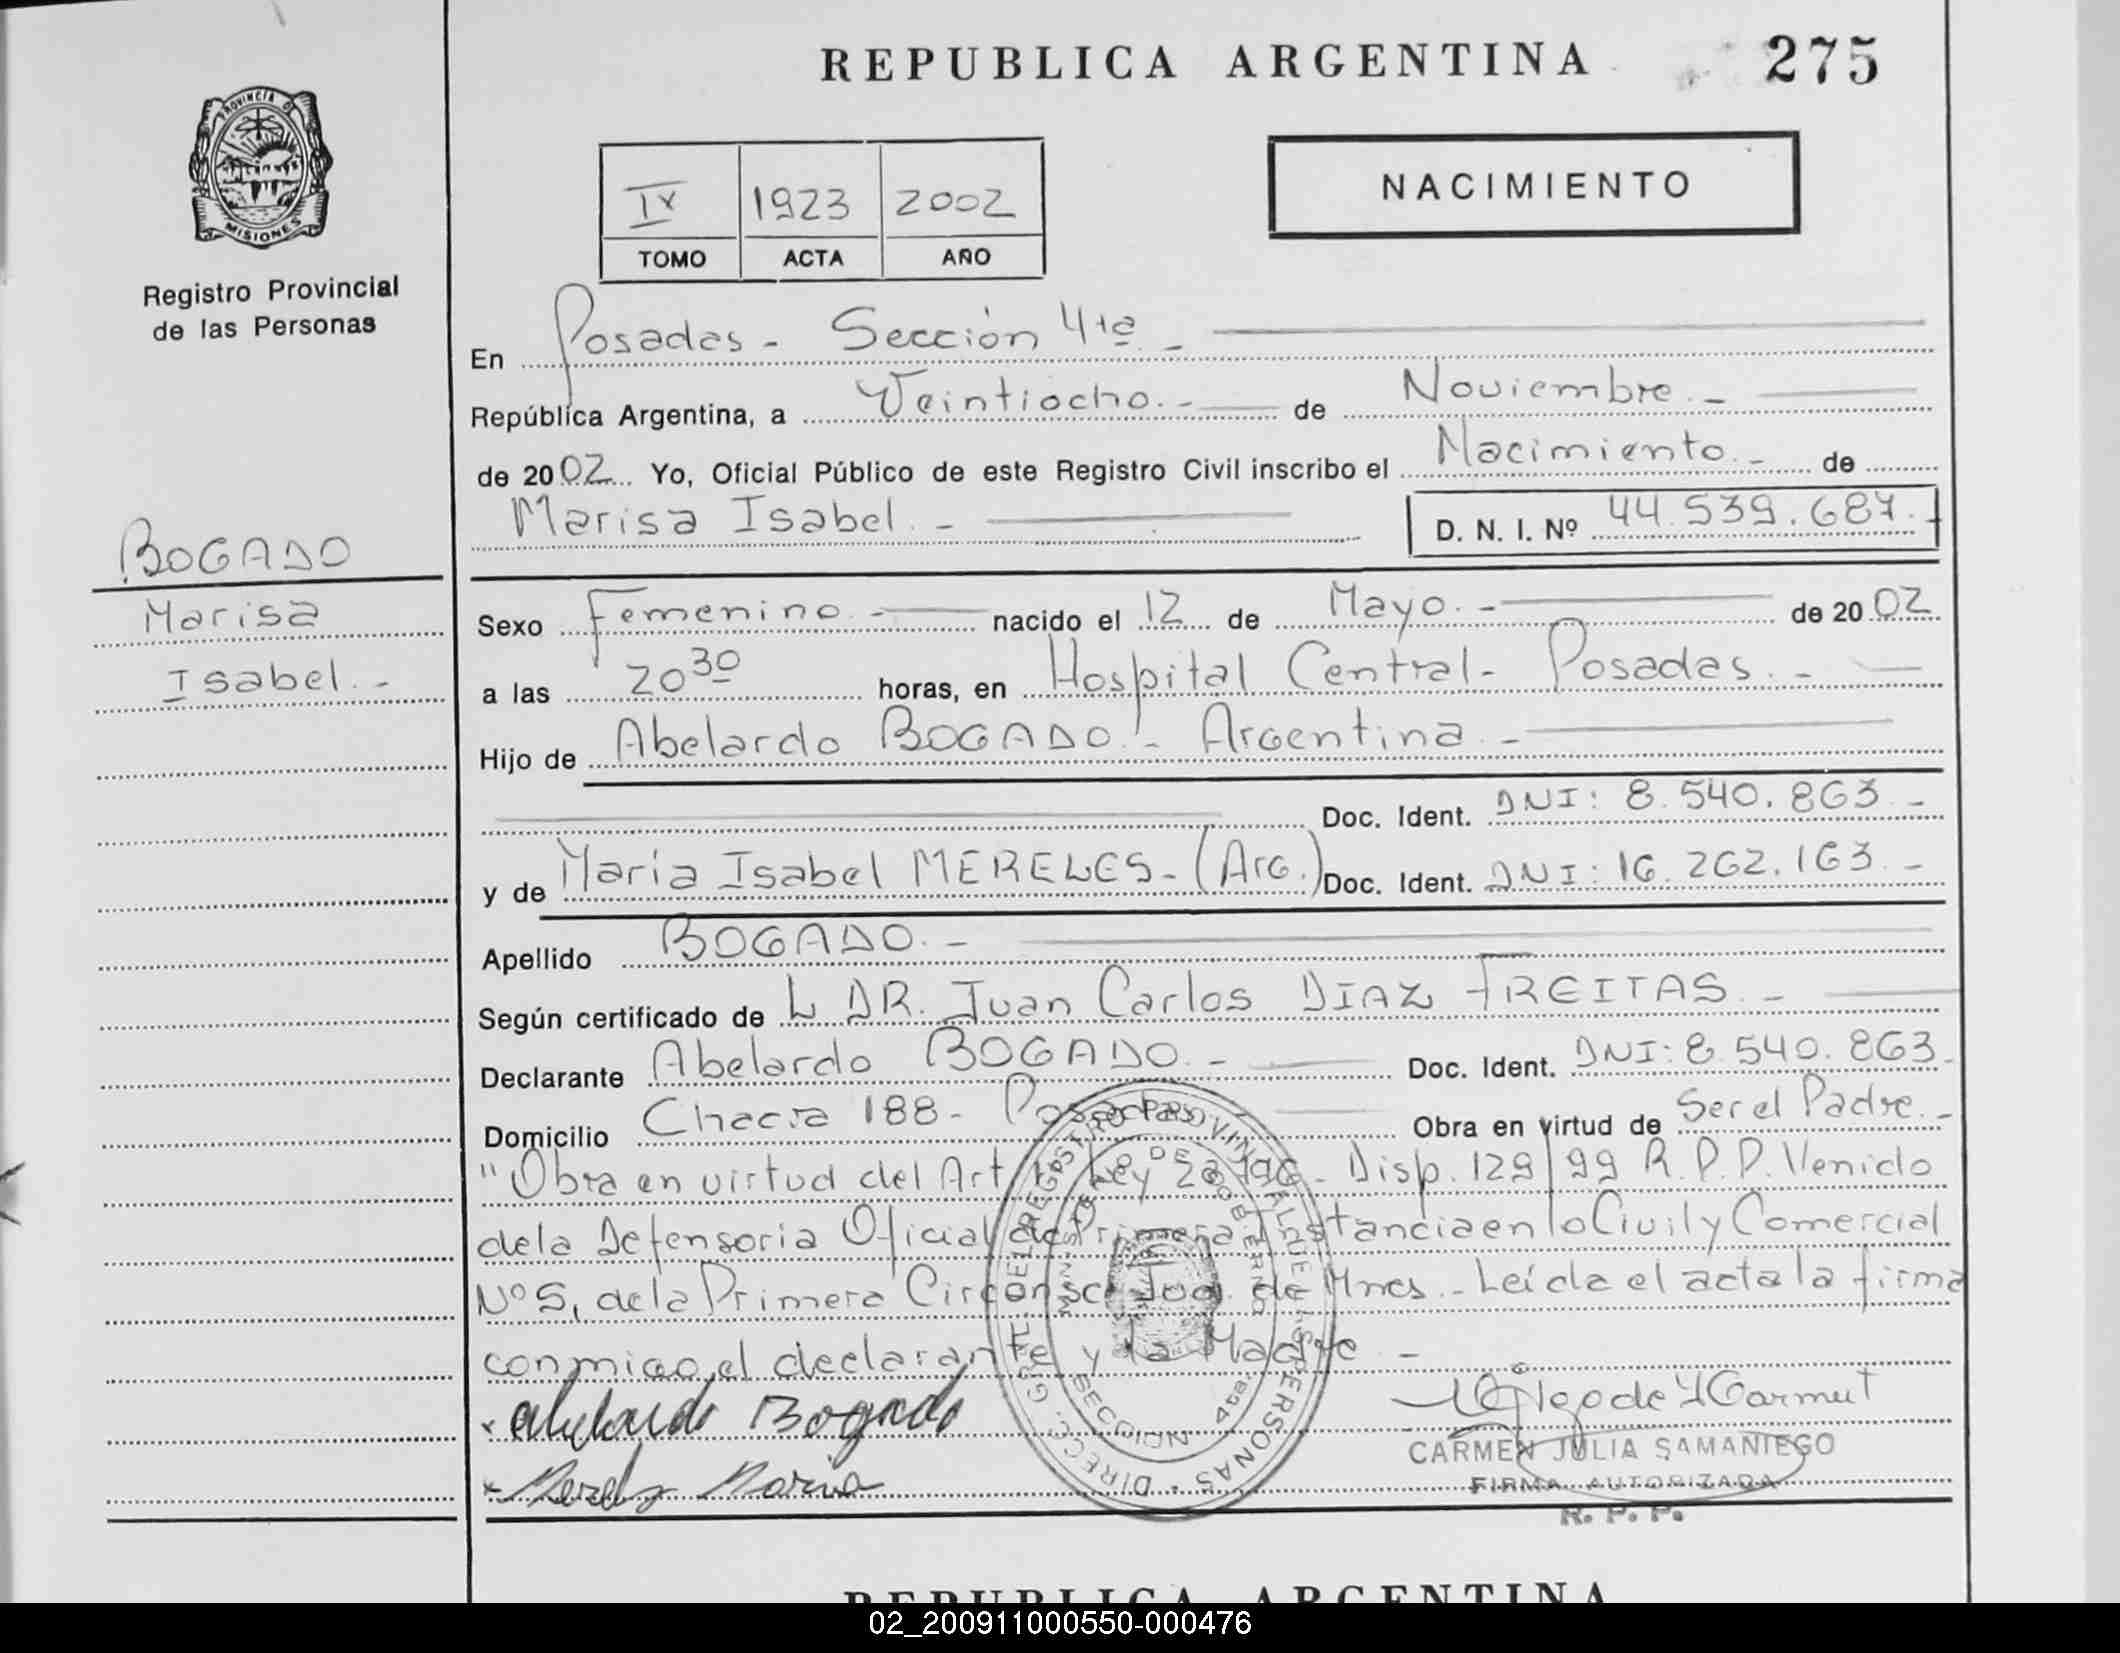 REPUBLICA ARGENTINA
275
PROVINCIA D
MISIONES
Registro Provincial
de las Personas
IV 1923 2002
TOMO ACTA AÑO
NACIMIENTO
En Posadas - Sección 4ta -
República Argentina, a Veintiocho.- de Noviembre.-
de 2002 Yo, Oficial Público de este Registro Civil inscribo el Nacimiento.- de
Marisa Isabel.- D. N. I. Nº 44.539.687.-
BOGADO
Marisa
Isabel.-
Sexo Femenino.- nacido el 12 de Mayo.- de 2002
a las 20 30 horas, en Hospital Central - Posadas.-
Hijo de Abelardo BOGADO.- Argentina.-
Doc. Ident. DNI: 8.540.863.-
y de María Isabel MERELES - (Arg.) Doc. Ident. DNI: 16.262.163.-
Apellido BOGADO.-
Según certificado de L DR. Juan Carlos DIAZ FREITAS.-
Declarante Abelardo BOGADO.- Doc. Ident. DNI: 8.540.863.
Domicilio Chacra 188 - Posadas Obra en virtud de Ser el Padre.-
"Obra en virtud del Art. Ley - Disp. 129/99 R.P.P. Venido
de la Defensoria Oficial de Primera Instancia en lo Civil y Comercial
Nº 5, de la Primera Circonsc. Jud. de Mnes.- Leída el acta la firma
conmigo el declarante y la Madre.-
x Abelardo Bogado
x Mereles Maria
DIRECC. GRAL. DEL REGISTRO PROVINCIAL DE LAS PERSONAS
MINISTERIO DE GOBIERNO
SECCION 4ta.
CARMEN JULIA SAMANIEGO
FIRMA AUTORIZADA
R. P. P.
REPUBLICA ARGENTINA
02_200911000550-000476